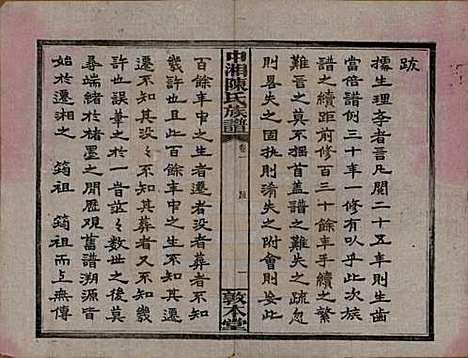 跋
據生理李者言凡閱二十五年則生齒
當倍譜例三十年一修有以乎此次族
譜之續距前修百三十餘年手續之
難言之莫不搤首蓋譜之難失之疏忽
則畧失之淆失之附會則妄此
中湘陳氏族譜
卷一
跋
一
敦本堂
百餘年中之生者遷者沒者葬者
幾許不知其生不知其
遷不知其沒不知其葬者亦不知幾
許也誤筆之於一首述數世之後莫
尋端緒於楮墨之間歷觀舊譜溯源皆
始於遷湘之 筠祖 筠祖而上無傳